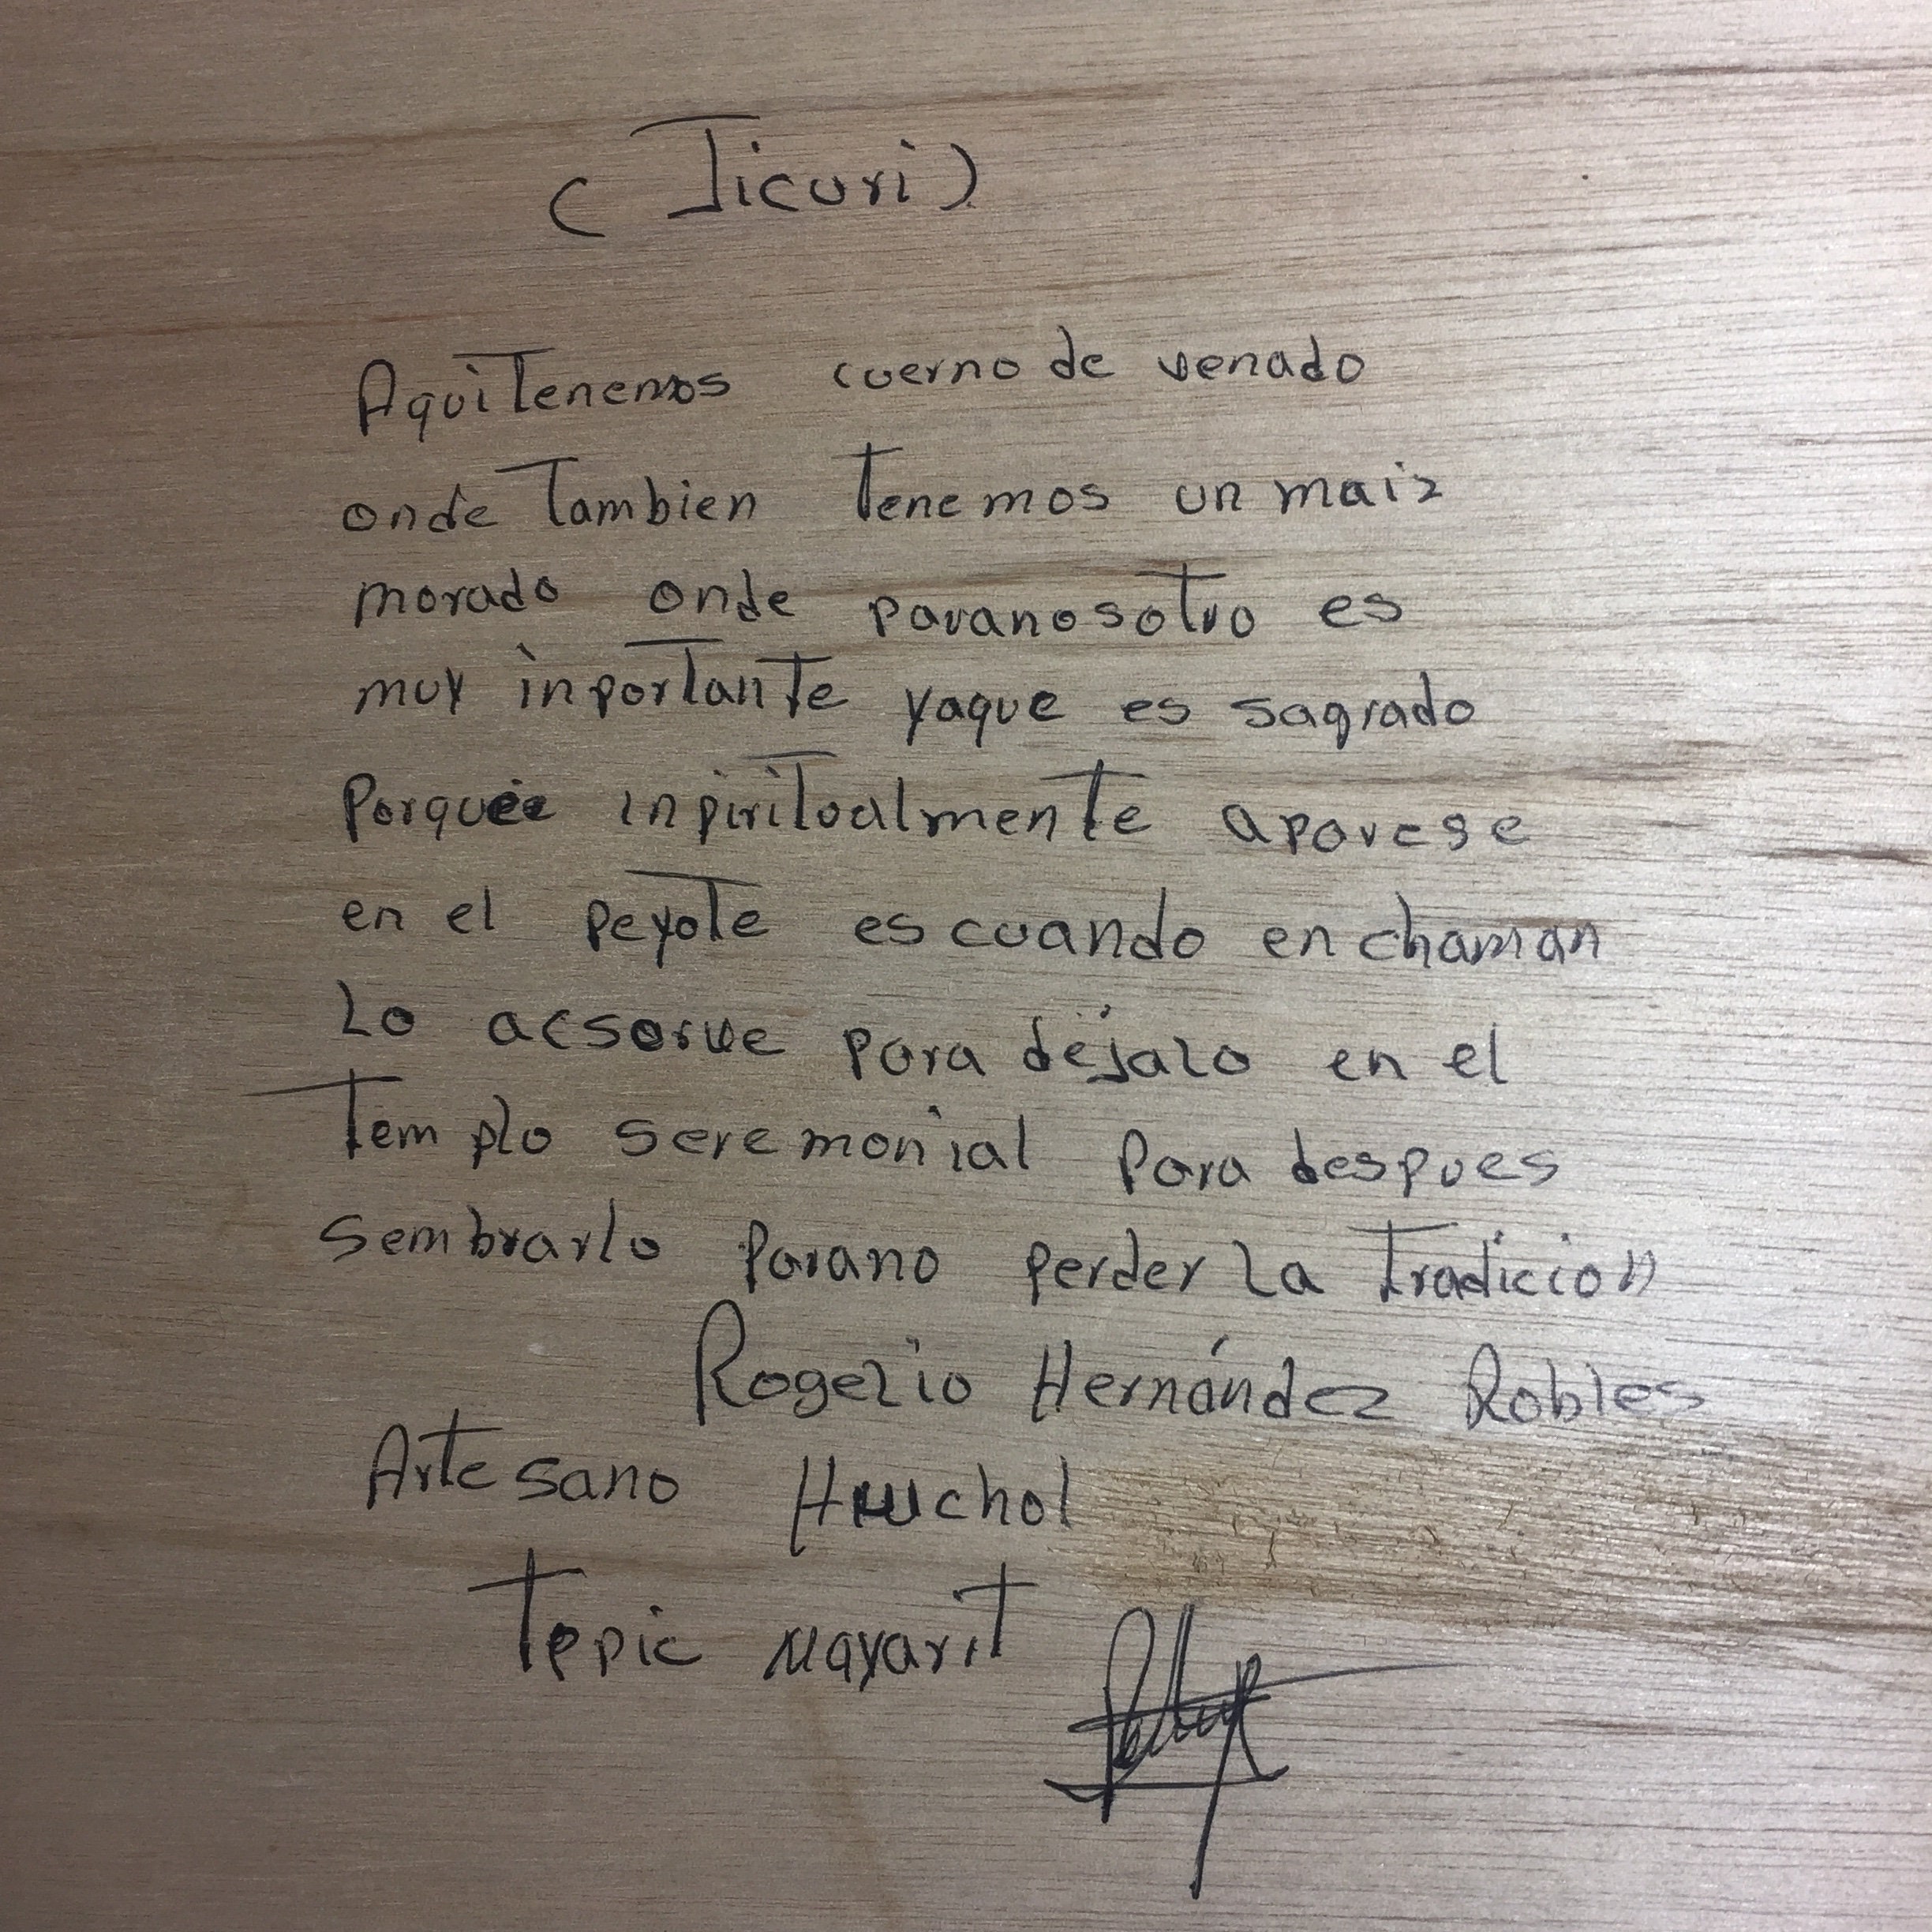 (Jicuri)
Aqui Tenemos cuerno de venado
onde Tambien Tenemos un maiz
morado onde paranosotro es
muy inportante yaque es sagrado
Porque inpiritoalmente aparese
en el peyote es cuando en chaman
Lo acsorve para dejalo en el
Templo seremonial Para despues
sembrarlo Parano perder La Tradicion
Rogelio Hernández Robles
Artesano Huichol
Tepic Nayarit